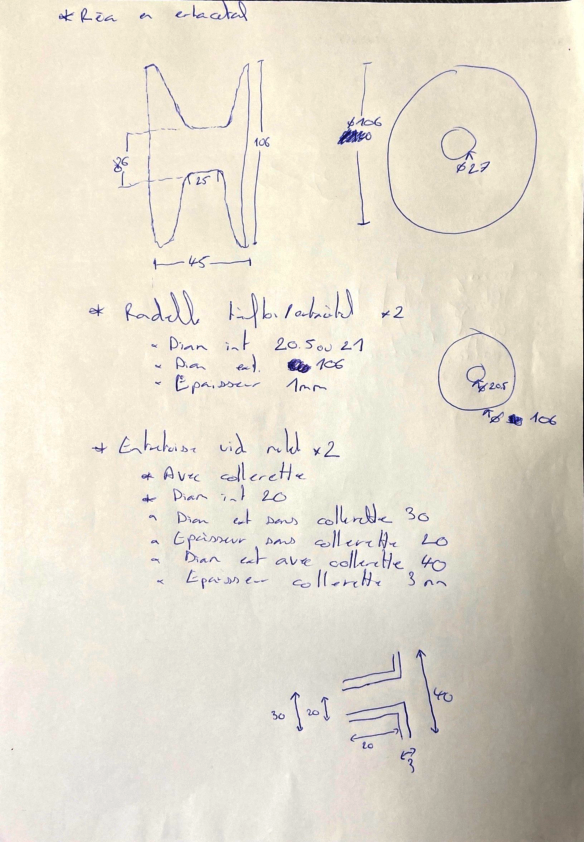 * Réa en ertacétal
106
26
25
45
ø 106
ø 27
* Rondelle ertacétal x2
- Diam int 20.5 ou 21
- Diam ext. 106
- Epaisseur 1mm
ø 20.5
ø 106
* Entretoise x2
* Avec collerette
* Diam int 20
- Diam ext sans collerette 30
- Epaisseur sans collerette 20
- Diam ext avec collerette 40
- Epaisseur collerette 3 mm
30
20
40
20
3